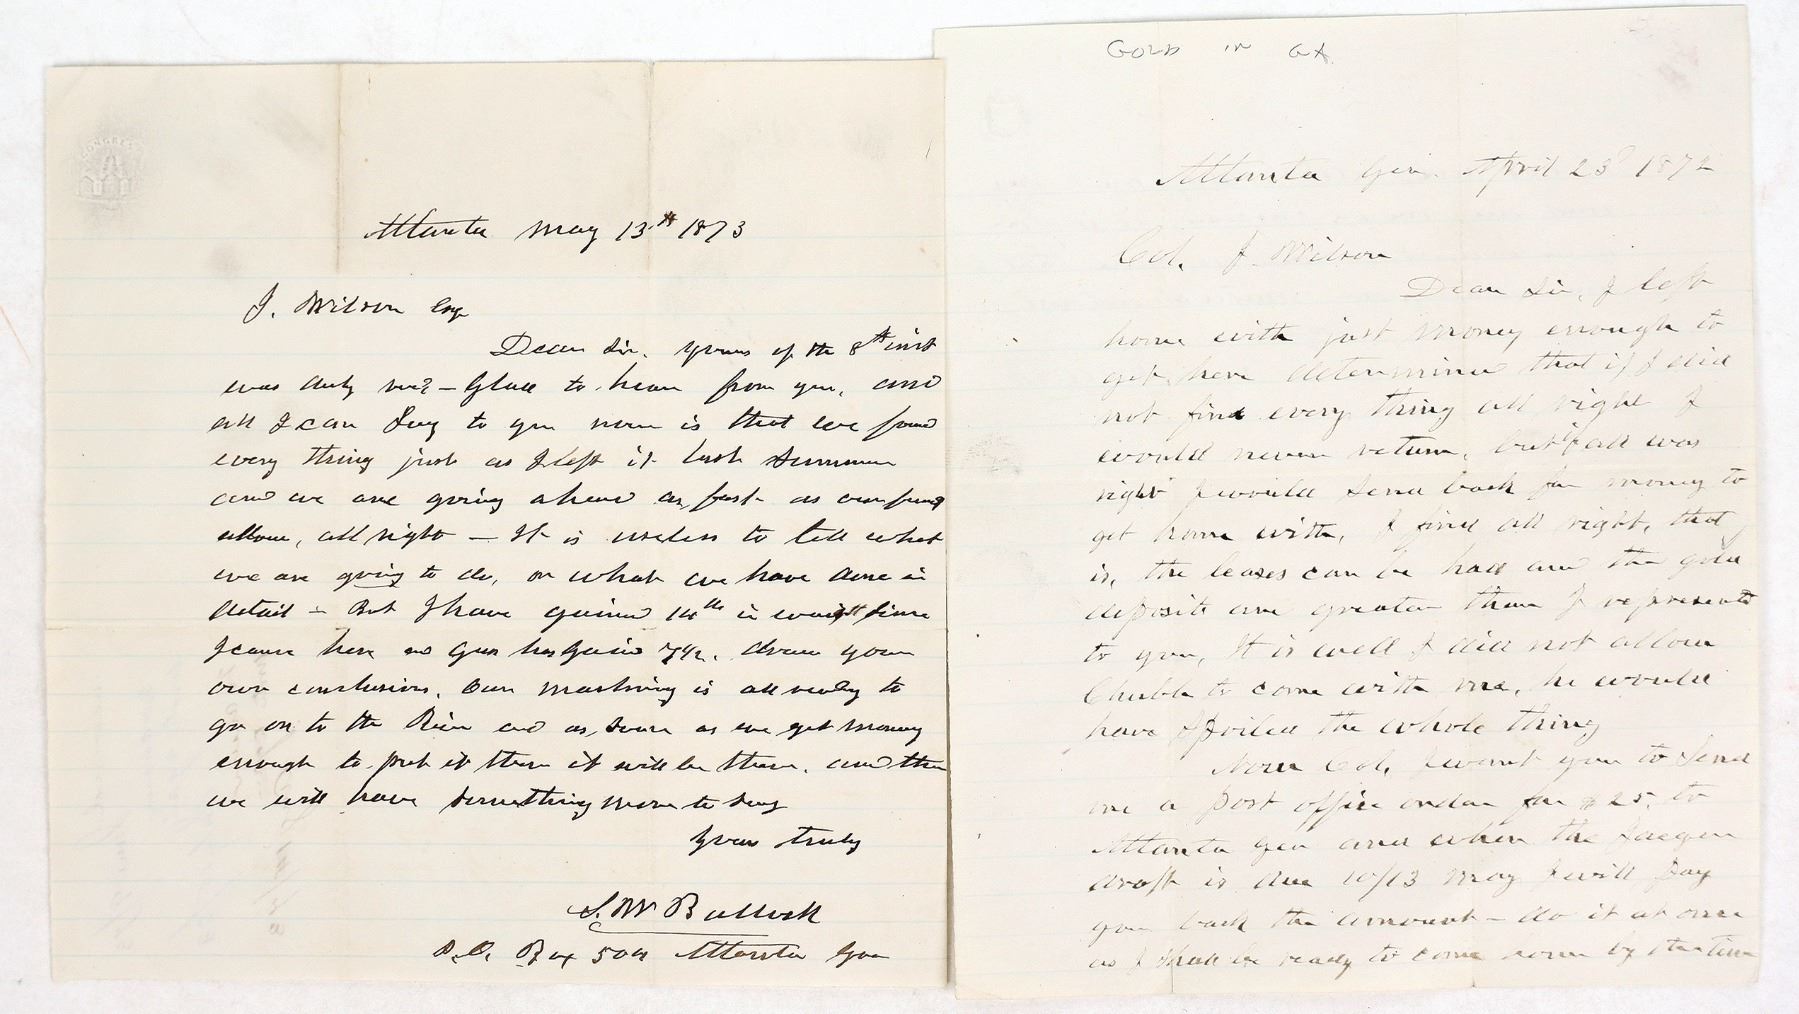 CONGRESS
Atlanta May 13th 1873
J. Wilson Esq
Dear Sir. Yours of the 8th inst
was duly rec'd – Glad to hear from you, and
all I can Say to you now is that we found
every thing just as I left it last Summer
and we are going ahead as fast as our funds
allow, all right – It is useless to tell what
we are going to do, or what we have done in
detail – But I have gained 14 lbs in weight since
I came here and Gus has Gained 7½. draw your
own conclusions. Our machinery is all ready to
go on to the River and as soon as we get money
enough to put it there it will be there. and then
we will have something more to say
Yours truly
S. W. Bullock
P.O. Box 504 Atlanta Geo
GOLD IN GA
Atlanta Geo. April 23d 1872
Col. J. Wilson
Dear Sir, I left
home with just money enough to
get here determined that if I did
not find every thing all right I
would never return, but if all was
right I would Send back for money to
get home with, I find all right, that
is, the leases can be had and the gold
deposits are greater than I represented
to you, It is well I did not allow
Chubb to come with me, he would
have Spoiled the whole thing
Now Col, I want you to Send
me a post office order for $25, to
Atlanta Geo and when the
draft is due 10/13 May I will pay
you back the amount – do it at once
as I Shall be ready to come home by the time